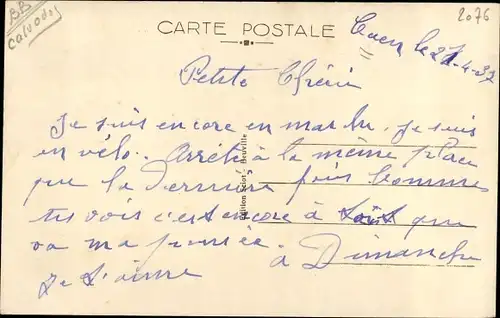 BB
Calvados
CARTE POSTALE
2076
Caen le 27-4-37
Petite Chérie
Je suis encore en marche, je suis
en vélo. Arrêté à la même place
que la dernière fois. Comme
tu vois c'est encore à toi que
va ma pensée.
à Dimanche
Je t'aime
Edition Sciot, Bieuville